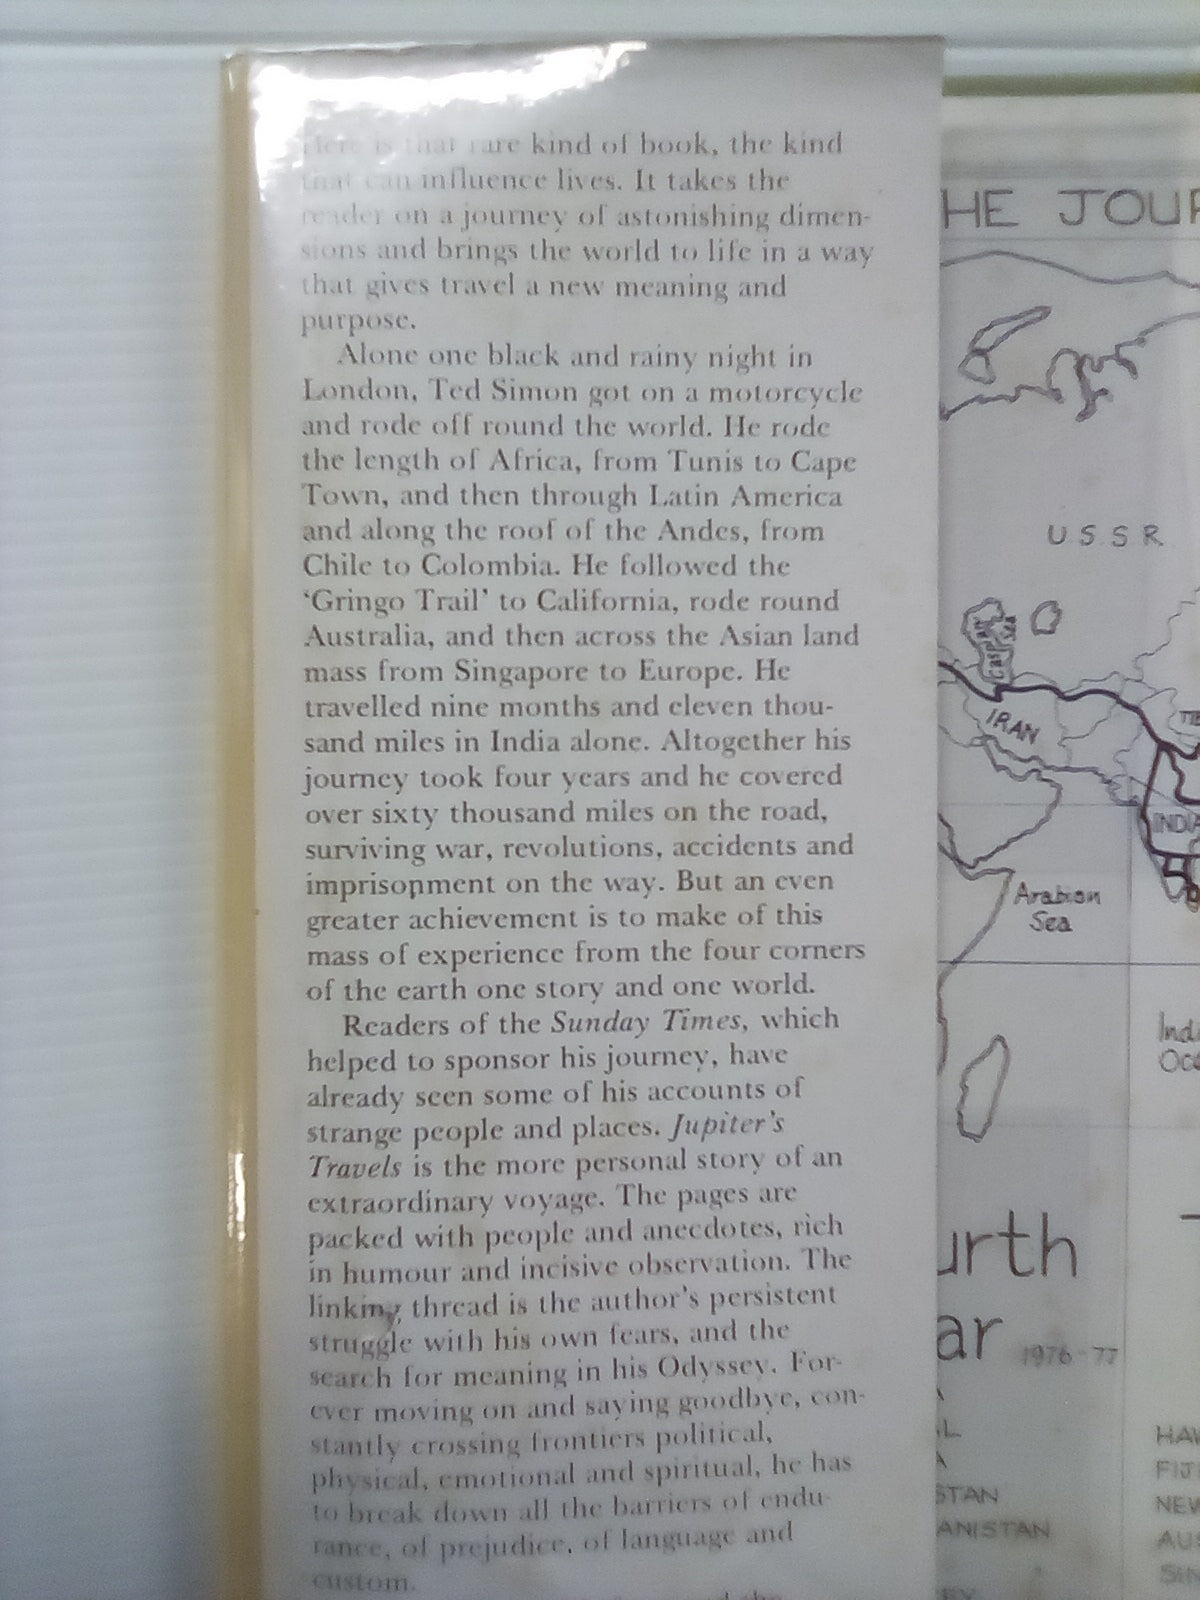 Here is that rare kind of book, the kind
that can influence lives. It takes the
reader on a journey of astonishing dimen-
sions and brings the world to life in a way
that gives travel a new meaning and
purpose.
Alone one black and rainy night in
London, Ted Simon got on a motorcycle
and rode off round the world. He rode
the length of Africa, from Tunis to Cape
Town, and then through Latin America
and along the roof of the Andes, from
Chile to Colombia. He followed the
‘Gringo Trail’ to California, rode round
Australia, and then across the Asian land
mass from Singapore to Europe. He
travelled nine months and eleven thou-
sand miles in India alone. Altogether his
journey took four years and he covered
over sixty thousand miles on the road,
surviving war, revolutions, accidents and
imprisonment on the way. But an even
greater achievement is to make of this
mass of experience from the four corners
of the earth one story and one world.
Readers of the Sunday Times, which
helped to sponsor his journey, have
already seen some of his accounts of
strange people and places. Jupiter’s
Travels is the more personal story of an
extraordinary voyage. The pages are
packed with people and anecdotes, rich
in humour and incisive observation. The
linking thread is the author’s persistent
struggle with his own fears, and the
search for meaning in his Odyssey. For-
ever moving on and saying goodbye, con-
stantly crossing frontiers political,
physical, emotional and spiritual, he has
to break down all the barriers of endu-
rance, of prejudice, of language and
custom.
HE JOUR
USSR
Caspian Sea
IRAN
INDIA
Arabian
Sea
urth
ar 1976-77
STAN
ANISTAN
HAW
FIJI
NEW
AUS
SIN